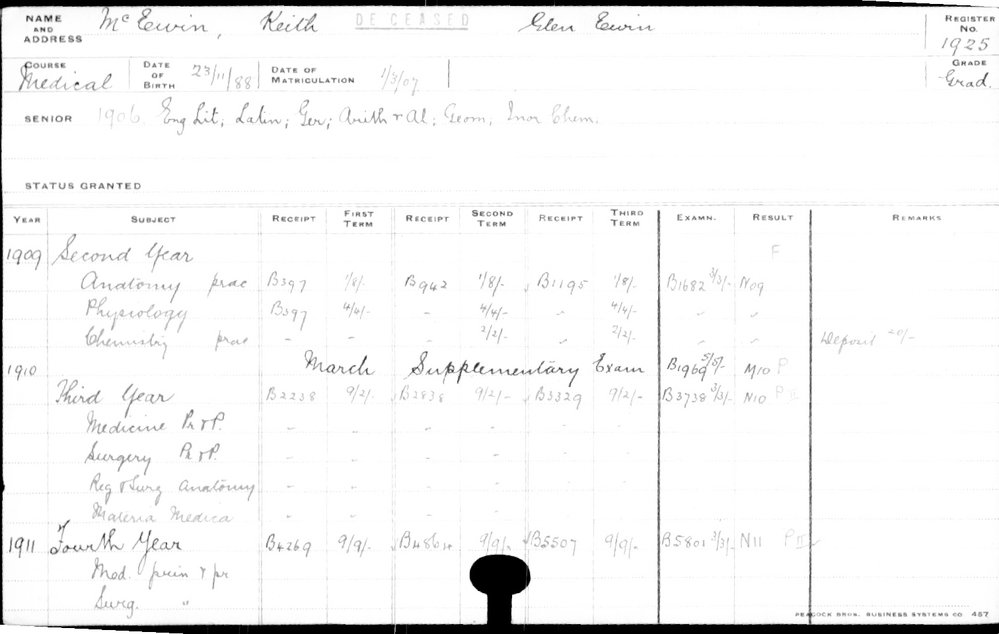 NAME AND ADDRESS McEwin, Keith DECEASED Glen Ewin REGISTER No. 1925
COURSE Medical DATE OF BIRTH 23/11/88 DATE OF MATRICULATION 1/3/07 GRADE Grad.
SENIOR 1906. Eng Lit; Latin; Ger; Arith & Al; Geom; Inor Chem.
STATUS GRANTED
YEAR SUBJECT RECEIPT FIRST TERM RECEIPT SECOND TERM RECEIPT THIRD TERM EXAMN. RESULT REMARKS
1909 Second Year F
Anatomy prac B397 1/8/- B942 1/8/- B1195 1/8/- B1682 3/3/- N09
Physiology B397 4/4/- - 4/4/- " 4/4/- " "
Chemistry prac - - - 2/2/- - 2/2/- " " Deposit 20/-
1910 March Supplementary Exam B1969 5/5/- M10 P
Third Year B2238 9/2/- B2838 9/2/- B3329 9/2/- B3738 3/3/- N10 P II
Medicine Pr & P.
Surgery Pr & P.
Reg & Surg Anatomy
Materia Medica
1911 Fourth Year B4269 9/9/- B4864 9/9/- B5507 9/9/- B5801 3/3/- N11 P II
Med. prin & pr
Surg. "
PEACOCK BROS. BUSINESS SYSTEMS CO 457